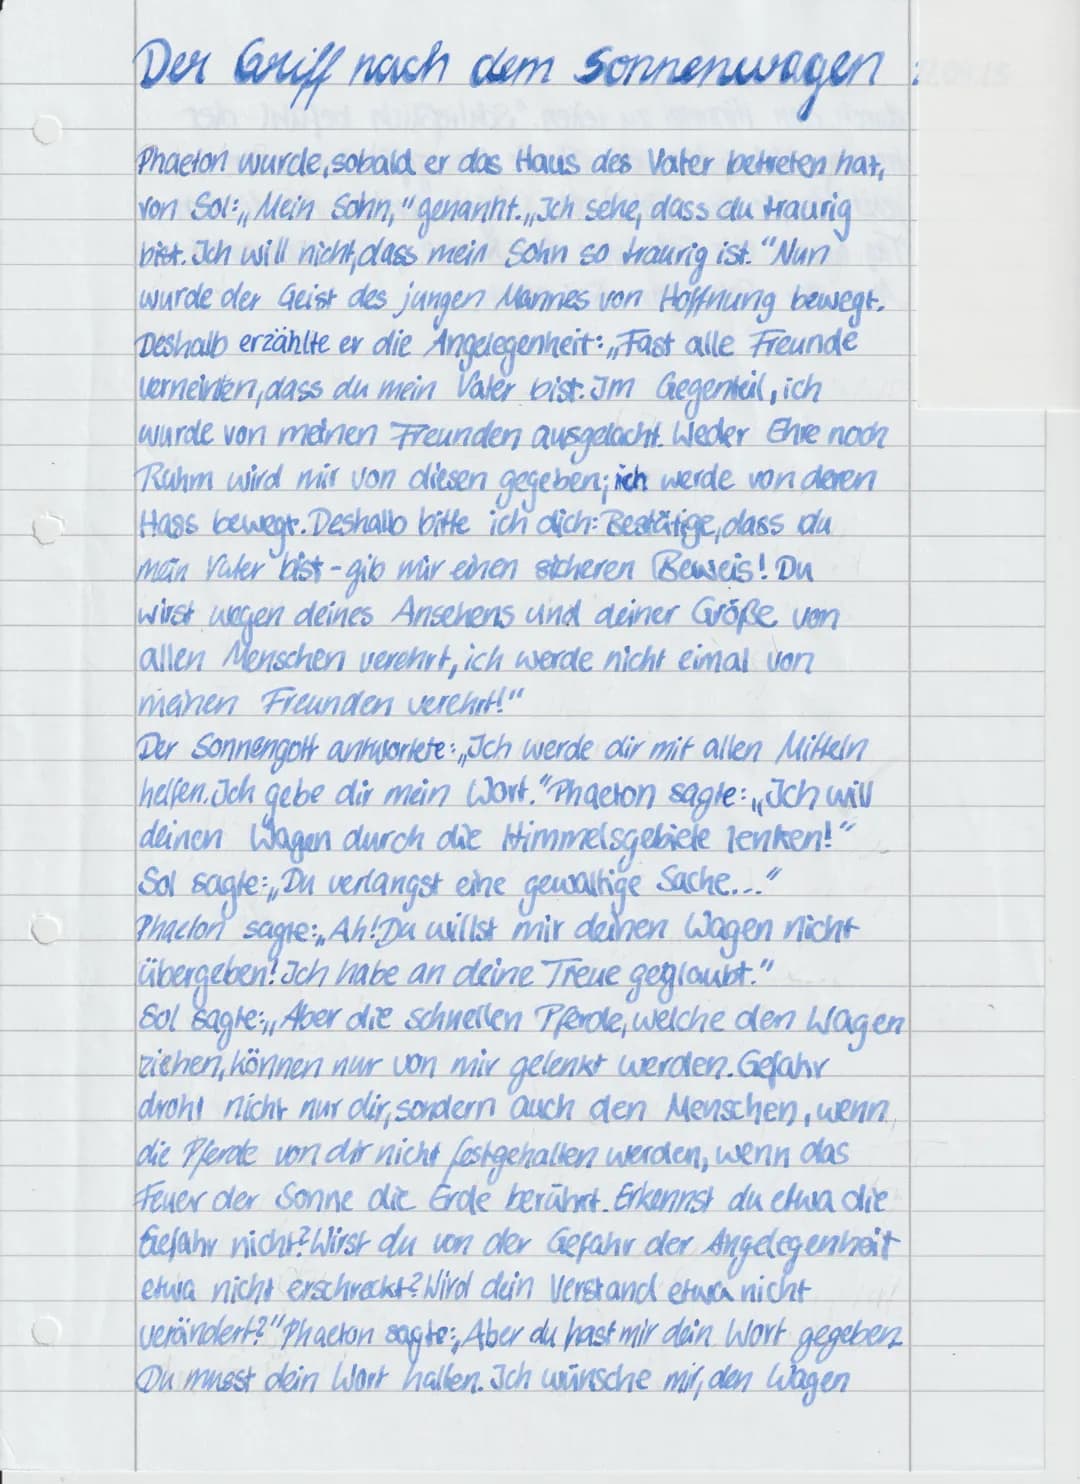 Der Griff nach dem Sonnenwagen
Phaeton wurde, sobald er das Haus des Vater betreten hat,
von Sol: „Mein Sohn," genannt. „Ich sehe, dass du traurig
bist. Ich will nicht, dass mein Sohn so traurig ist." Nun
wurde der Geist des jungen Mannes von Hoffnung bewegt.
Deshalb erzählte er die Angelegenheit: „Fast alle Freunde
verneinten, dass du mein Vater bist. Im Gegenteil, ich
wurde von meinen Freunden ausgelacht. Weder Ehre noch
Ruhm wird mir von diesen gegeben; ich werde von deren
Hass bewegt. Deshalb bitte ich dich: Bestätige, dass du
mein Vater bist - gib mir einen sicheren Beweis! Du
wirst wegen deines Ansehens und deiner Größe von
allen Menschen verehrt, ich werde nicht eimal von
meinen Freunden verehrt!"
Der Sonnengott antwortete: „Ich werde dir mit allen Mitteln
helfen. Ich gebe dir mein Wort." Phaeton sagte: „Ich will
deinen Wagen durch die Himmelsgebiete lenken!"
Sol sagte: „Du verlangst eine gewaltige Sache..."
Phaeton sagte: „Ah! Du willst mir deinen Wagen nicht
übergeben! Ich habe an deine Treue geglaubt."
Sol sagte: „Aber die schnellen Pferde, welche den Wagen
ziehen, können nur von mir gelenkt werden. Gefahr
droht nicht nur dir, sondern auch den Menschen, wenn
die Pferde von dir nicht festgehalten werden, wenn das
Feuer der Sonne die Erde berührt. Erkennst du etwa die
Gefahr nicht? Wirst du von der Gefahr der Angelegenheit
etwa nicht erschreckt? Wird dein Verstand etwa nicht
verändert?" Phaeton sagte: „Aber du hast mir dein Wort gegeben.
Du musst dein Wort halten. Ich wünsche mir, den Wagen